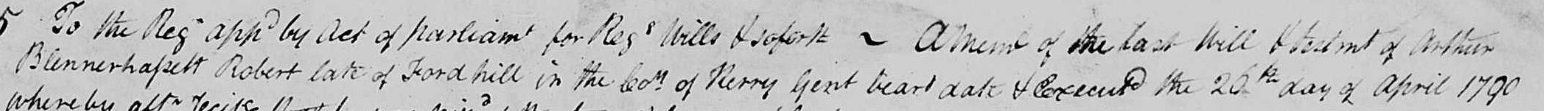 5 To the Regr appd by Act of parliamt for Regg Wills & soforth ~ A Meml of the last Will & testmt of Arthur
Blennerhassett Robert late of Fordhill in the Coty of Kerry Gent beard date & Execut'd the 26th day of April 1790
whereby aftr